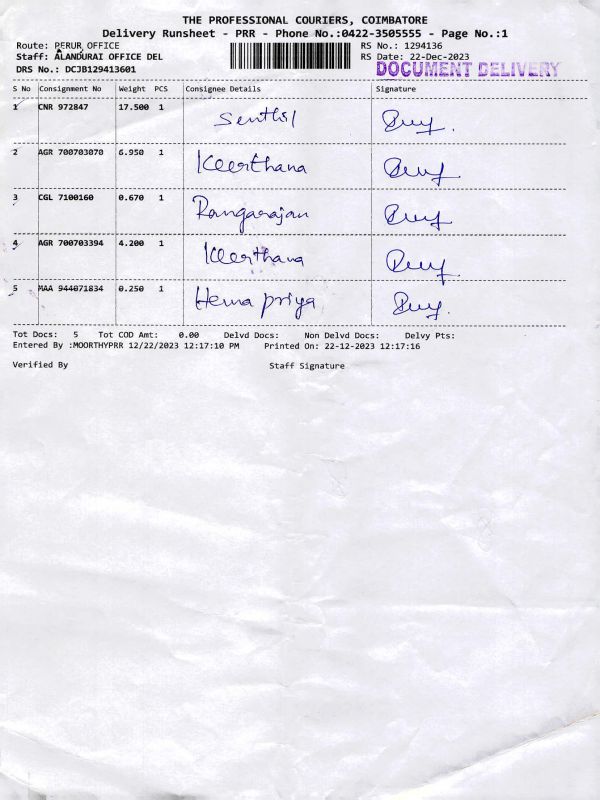 THE PROFESSIONAL COURIERS, COIMBATORE
Delivery Runsheet - PRR - Phone No.:0422-3505555 - Page No.:1
Route: PERUR OFFICE RS No.: 1294136
Staff: ALANDURAI OFFICE DEL RS Date: 22-Dec-2023
DRS No.: DCJB129413601 DOCUMENT DELIVERY
S No Consignment No Weight PCS Consignee Details Signature
1 CNR 972847 17.500 1 Senthil
2 AGR 700703070 6.950 1 Keerthana
3 CGL 7100160 0.670 1 Rangarajan
4 AGR 700703394 4.200 1 Keerthana
5 MAA 944071834 0.250 1 Hema priya
Tot Docs: 5 Tot COD Amt: 0.00 Delvd Docs: Non Delvd Docs: Delvy Pts:
Entered By :MOORTHYPRR 12/22/2023 12:17:10 PM Printed On: 22-12-2023 12:17:16
Verified By Staff Signature